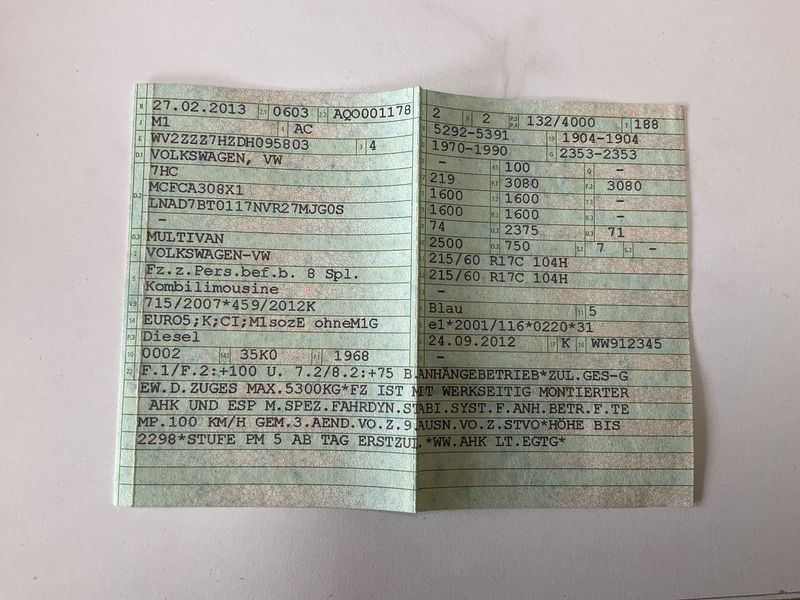 27.02.2013 0603 AQO001178
M1 AC
WV2ZZZ7HZDH095803 4
VOLKSWAGEN, VW
7HC
MCFCA308X1
LNAD7BT0117NVR27MJG0S
-
MULTIVAN
VOLKSWAGEN-VW
Fz.z.Pers.bef.b. 8 Spl.
Kombilimousine
715/2007*459/2012K
EURO5;K;CI;M1sozE ohneM1G
Diesel
0002 35K0 1968
2 2 132/4000 188
5292-5391 1904-1904
1970-1990 2353-2353
- 100 -
219 3080 3080
1600 1600 -
1600 1600 -
74 2375 71
2500 750 7 -
215/60 R17C 104H
215/60 R17C 104H
-
Blau 5
e1*2001/116*0220*31
24.09.2012 K WW912345
-
F.1/F.2:+100 U. 7.2/8.2:+75 B.ANHÄNGEBETRIEB*ZUL.GES-G
EW.D.ZUGES MAX.5300KG*FZ IST MIT WERKSEITIG MONTIERTER
AHK UND ESP M.SPEZ.FAHRDYN.STABI.SYST.F.ANH.BETR.F.TE
MP.100 KM/H GEM.3.AEND.VO.Z.9.AUSN.VO.Z.STVO*HÖHE BIS
2298*STUFE PM 5 AB TAG ERSTZUL.*WW.AHK LT.EGTG*